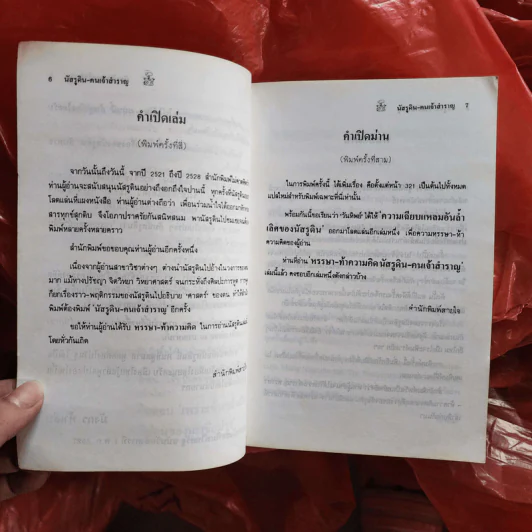 6 นัสรูดิน-คนเจ้าสำราญ
คำเปิดเล่ม
(พิมพ์ครั้งที่สี่)
จากวันนั้นถึงวันนี้ จากปี 2521 ถึงปี 2528 สำนักพิมพ์
ท่านผู้อ่านจะสนับสนุนนัสรูดินอย่างถึงอกถึงใจปานนี้ ทุกครั้งที่
โลดเล่นที่แผงหนังสือ ท่านผู้อ่านต่างถือว่า เพื่อนร่วมน้ำใจได้ออกมา
สารทุกข์สุกดิบ จึงโอภาปราศรัยกันสนิทสนม พานัสรูดินไป
พิมพ์หลายครั้งหลายคราว
สำนักพิมพ์ขอขอบคุณท่านผู้อ่านอีกครั้งหนึ่ง
เนื่องจากผู้อ่านสาขาวิชาต่างๆ ต่างนำนัสรูดินไปอ้างในวงการ
มาก แม้ทางปรัชญา จิตวิทยา วิทยาศาสตร์ จนกระทั่งศิลปะการพูด
กียกเรื่องราว-พฤติกรรมของนัสรูดินไปอธิบาย 'ศาสตร์' ของตน ทำให้
พิมพ์ต้องพิมพ์ 'นัสรูดิน-คนเจ้าสำราญ' อีกครั้ง
ขอให้ท่านผู้อ่านได้รับ หรรษา-ท้าความคิด ในการอ่านนัสรูดิน
โดยทั่วกันเถิด
สำนักพิมพ์
นัสรูดิน-คนเจ้าสำราญ 7
คำเปิดม่าน
(พิมพ์ครั้งที่สาม)
ในการพิมพ์ครั้งนี้ ได้เพิ่มเรื่อง คือตั้งแต่หน้า 321 เป็นต้นไปทั้งหมด
แปลใหม่สำหรับพิมพ์เฉพาะที่นี่เท่านั้น
พร้อมกันนี้ขอเรียนว่า 'วันทิพย์' ได้ให้ 'ความเฉียบแหลมอันล้ำ
เลิศของนัสรูดิน' ออกมาโลดแล่นอีกเล่มหนึ่ง เพื่อความหรรษา-ท้า
ความคิดของผู้อ่าน
ท่านที่อ่าน 'หรรษา-ท้าความคิด นัสรูดิน-คนเจ้าสำราญ'
เล่มนี้แล้ว คงชอบอีกเล่มหนึ่งดังกล่าวบ้าง
สำนักพิมพ์สาระใจ